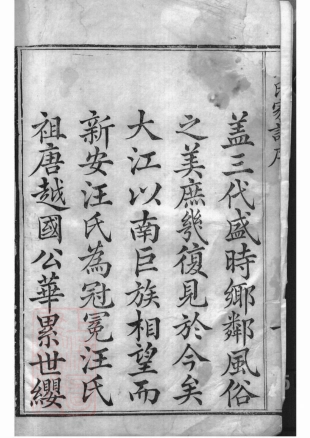 蓋三代盛時鄉鄰風俗
之美庶幾復見於今矣
大江以南巨族相望而
新安汪氏為冠冕汪氏
祖唐越國公華累世纓